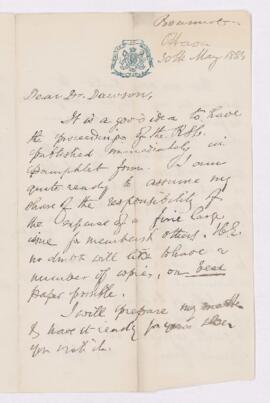 Ottawa
30th May 1884
Dear Dr. Dawson,
It is a good idea to have
the proceedings of the R.S.
published immediately in
pamphlet form. I am
quite ready to assume my
share of the responsibility of
the expense of a fine large
issue for members & others. H.E.
no doubt will like to have a
number of copies, on best
paper possible.
I will prepare my
& have it ready for you when
you wish it.